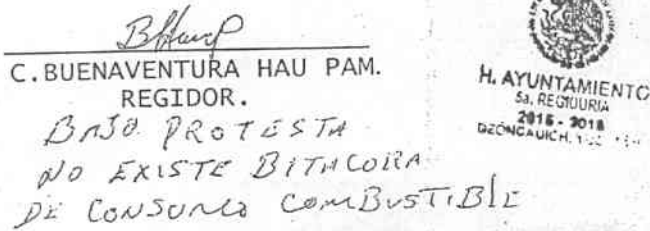 C.BUENAVENTURA HAU PAM.
REGIDOR.
BAJO PROTESTA
NO EXISTE BITACORA
DE CONSUMO COMBUSTIBLE
H. AYUNTAMIENTO
5a. REGIDURIA
2015 - 2018
DZONCAUICH,